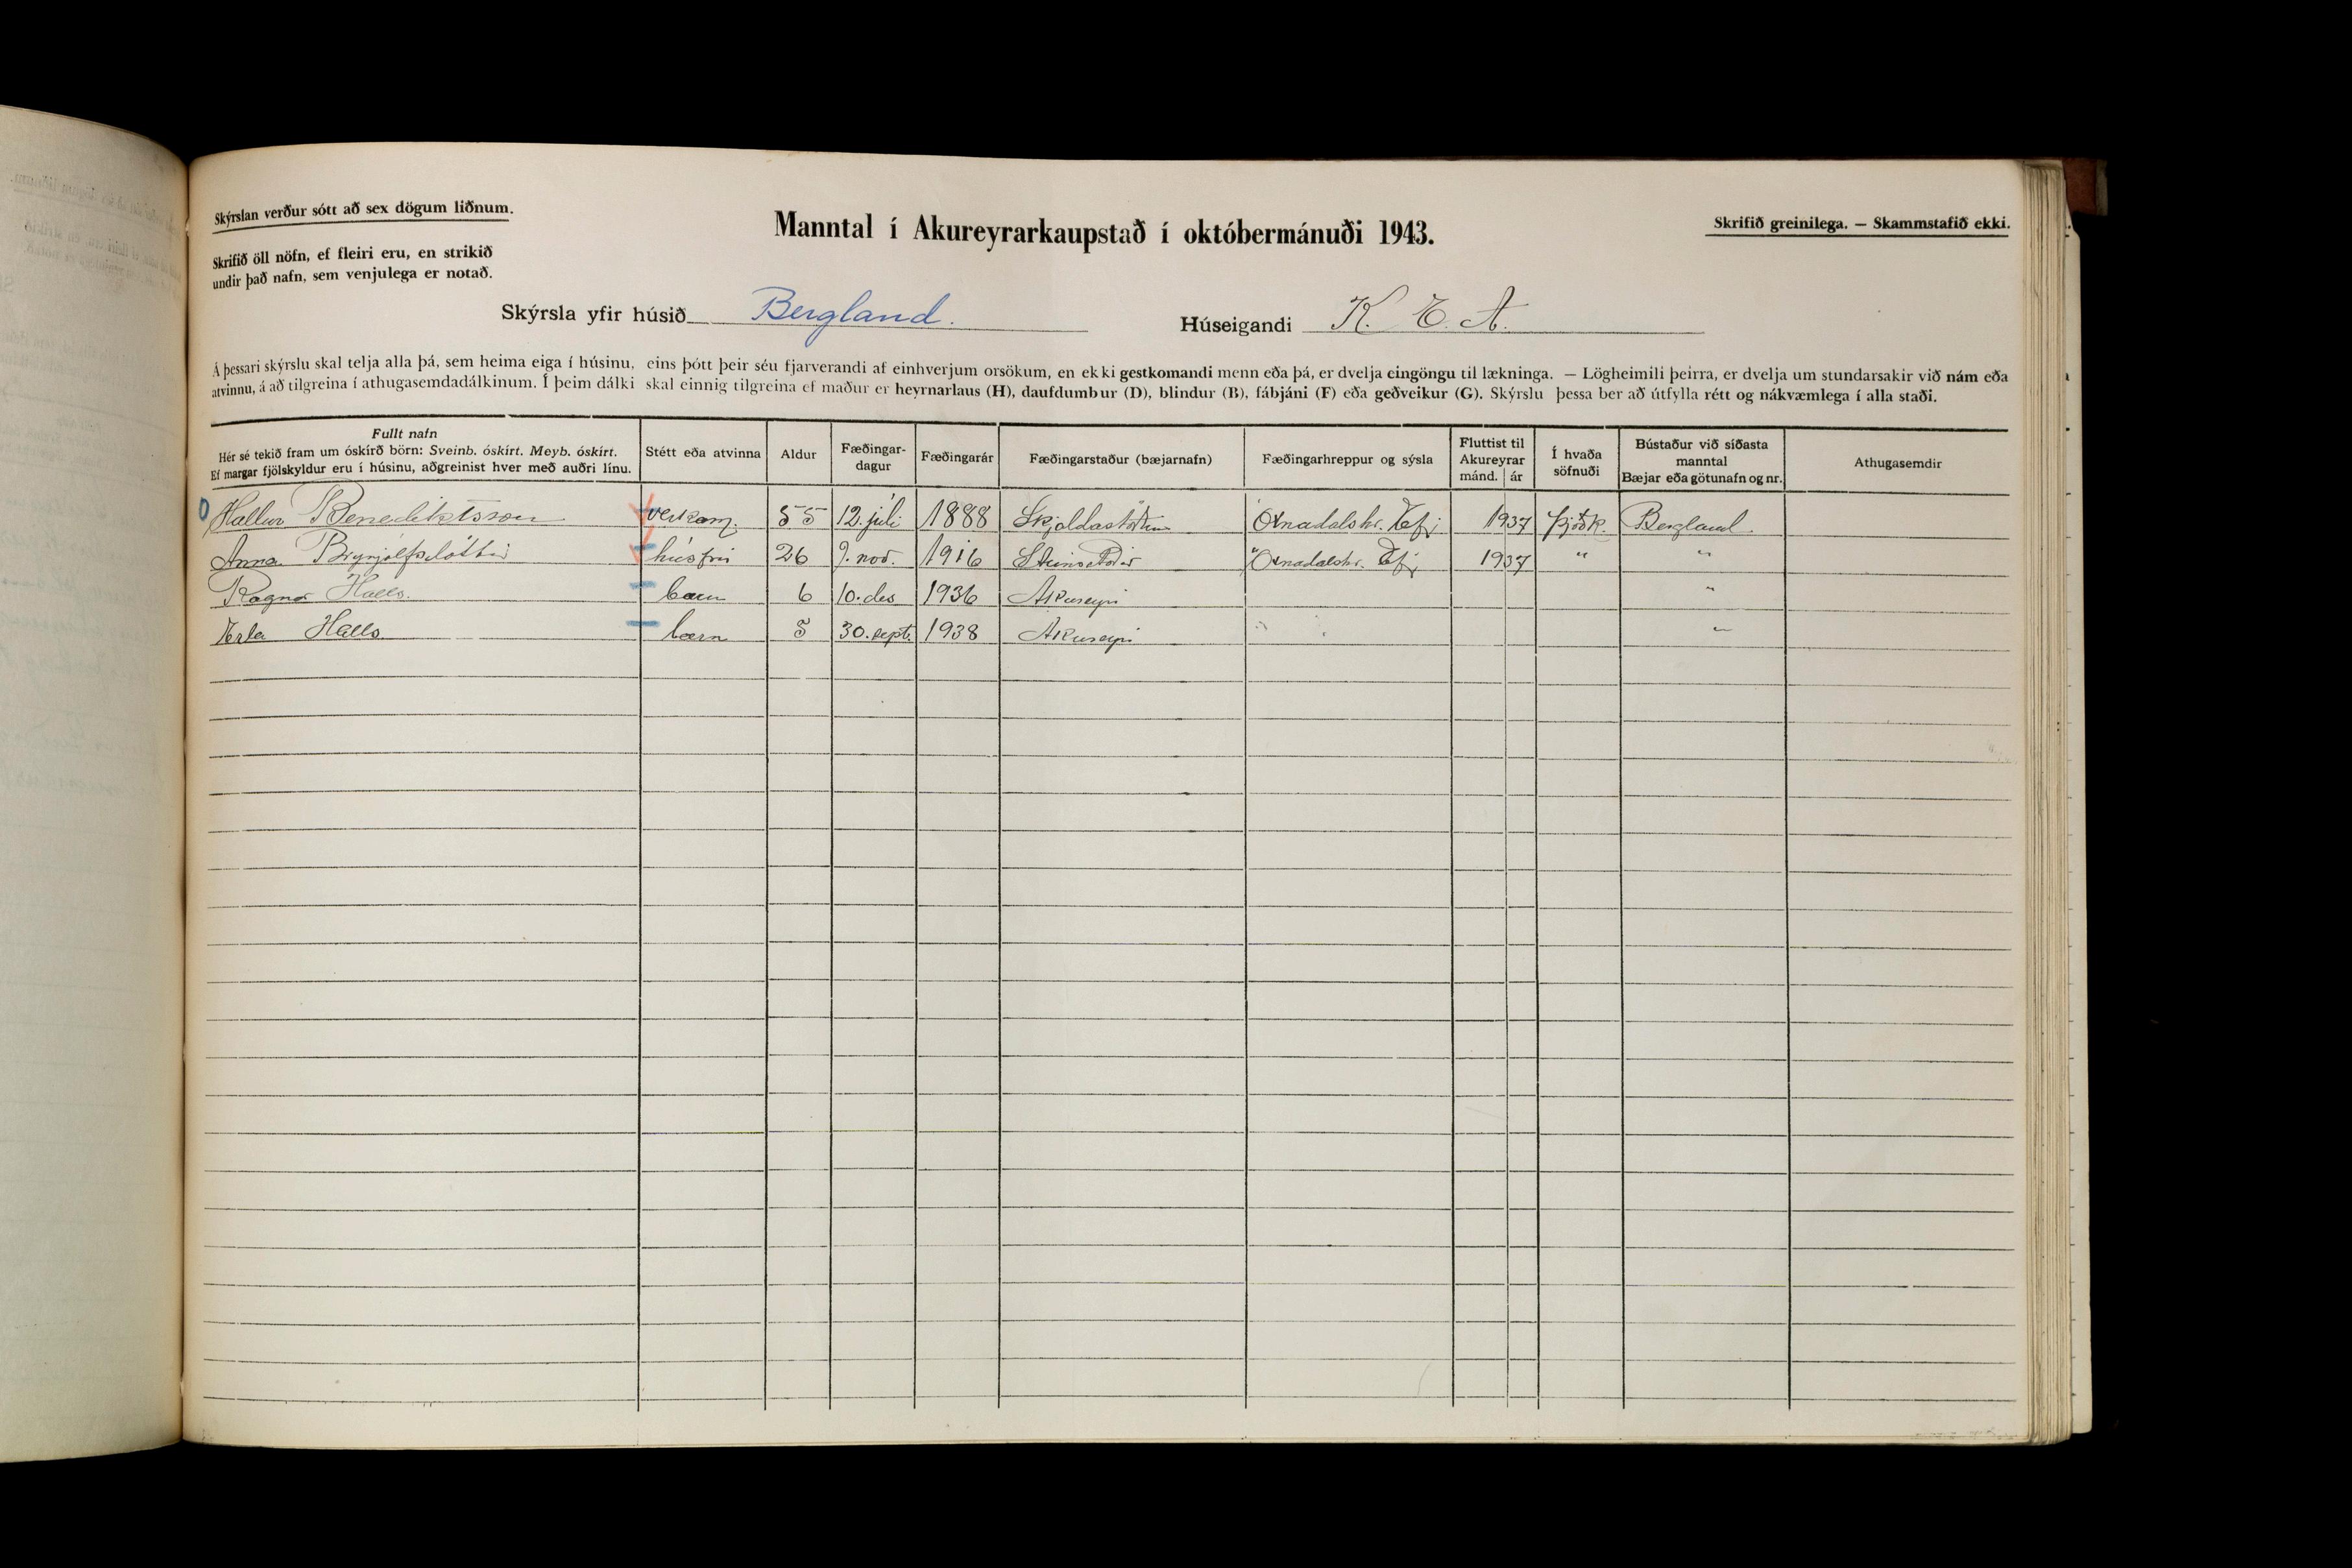 Skýrslan verður sótt að sex dögum liðnum.
Manntal í Akureyrarkaupstað í októbermánuði 1943.
Skrifið greinilega. — Skammstafið ekki.
Skrifið öll nöfn, ef fleiri eru, en strikið
undir það nafn, sem venjulega er notað.
Skýrsla yfir húsið Bergland. Húseigandi K. E. A.
Á þessari skýrslu skal telja alla þá, sem heima eiga í húsinu, eins þótt þeir séu fjarverandi af einhverjum orsökum, en ekki gestkomandi menn eða þá, er dvelja eingöngu til lækninga. — Lögheimili þeirra, er dvelja um stundarsakir við nám eða
atvinnu, á að tilgreina í athugasemdadálkinum. Í þeim dálki skal einnig tilgreina ef maður er heyrnarlaus (H), daufdumbur (D), blindur (B), fábjáni (F) eða geðveikur (G). Skýrslu þessa ber að útfylla rétt og nákvæmlega í alla staði.
Fullt nafn
Hér sé tekið fram um óskírð börn: Sveinb. óskírt. Meyb. óskírt.
Ef margar fjölskyldur eru í húsinu, aðgreinist hver með auðri línu.
Stétt eða atvinna
Aldur
Fæðingar-
dagur
Fæðingarár
Fæðingarstaður (bæjarnafn)
Fæðingarhreppur og sýsla
Fluttist til
Akureyrar
mánd. ár
Í hvaða
söfnuði
Bústaður við síðasta
manntal
Bæjar eða götunafn og nr.
Athugasemdir
Hallur Benediktsson verkam. 55 12. júli 1888 Öxnadalshr. Efj 1937 þjóðk. Bergland.
Anna Brynjólfsdóttir húsfrú 26 9. nov. 1916 Öxnadalshr. Efj 1937 " "
Ragnar Halls. barn 6 10. des 1936 Akureyri "
Erla Halls barn 5 30. sept. 1938 Akureyri "